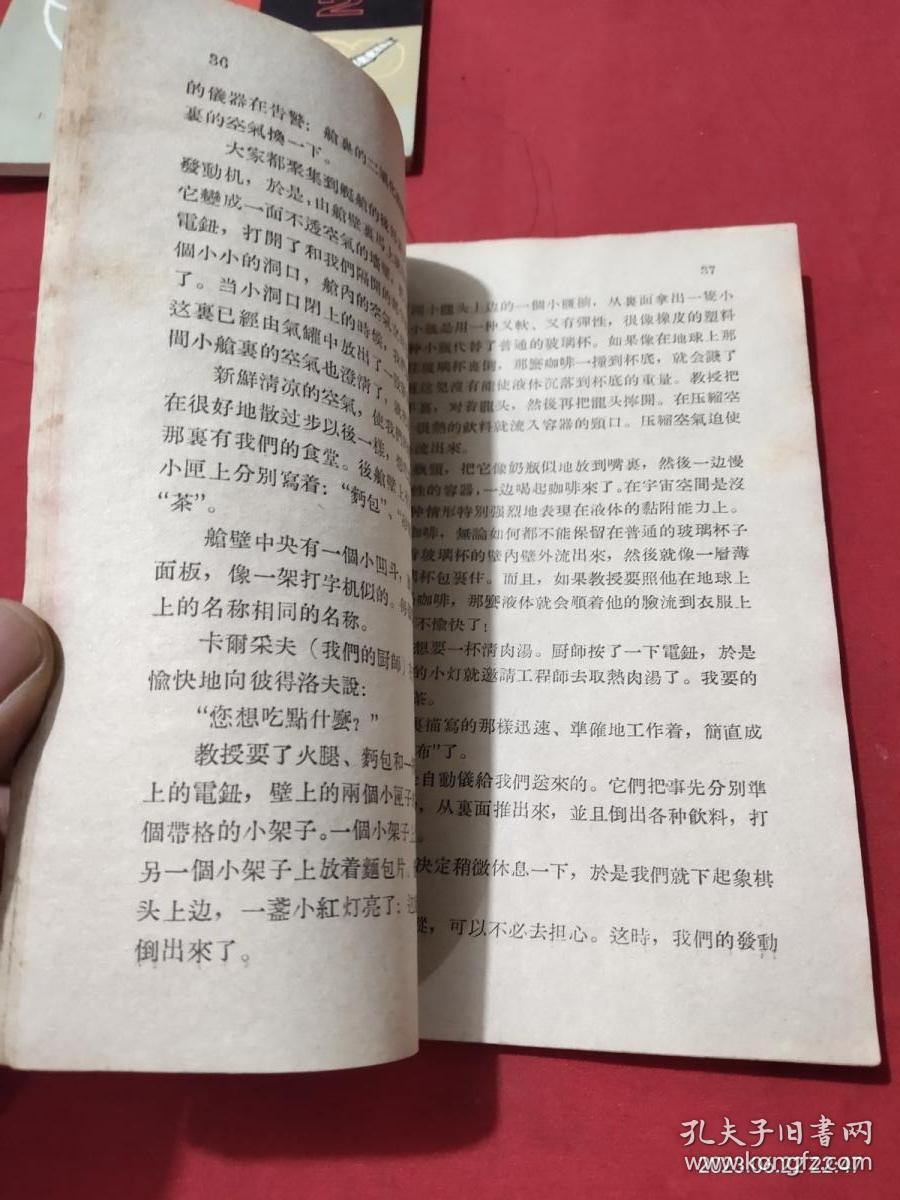 36
的儀器在告警：艙裏的二氧化
裏的空氣換一下。
大家都聚集到艇艙的後
發動机，於是，由艙壁裏馬上
它變成一面不透空氣的墻壁，
電鈕，打開了和我們隔開的
個小小的洞口，艙內的空氣
了。当小洞口閉上的時候，我
这裏已經由氣罐中放出了一
間小艙裏的空氣也澄清了，
新鮮清凉的空氣，使我們
在很好地散过步以後一樣，想
那裏有我們的食堂。後艙壁上
小匣上分別寫着：“麪包”、
“茶”。
艙壁中央有一個小凹斗，
面板，像一架打字机似的。每
上的名称相同的名称。
卡爾采夫（我們的厨師）
愉快地向彼得洛夫說：
“您想吃點什麽？”
教授要了火腿、麪包和一
上的電鈕，壁上的兩個小匣子
個帶格的小架子。一個小架子上
另一個小架子上放着麵包片。
头上边，一盞小紅灯亮了：
倒出來了。
37
開小龍头上边的一個小匣箱，从裏面拿出一隻小
小瓶是用一种又軟、又有彈性，很像橡皮的塑料
种小瓶代替了普通的玻璃杯。如果像在地球上那
往玻璃杯裏倒，那麽咖啡一撞到杯底，就会濺了
这兒沒有能使液体沉落到杯底的重量。教授把
裏，对着龍头，然後再把龍头擰開。在压縮空
很熱的飲料就流入容器的頸口。压縮空氣迫使
流出來。
瓶頸，把它像奶瓶似地放到嘴裏，然後一边慢
性的容器，一边喝起咖啡來了。在宇宙空間是沒
种情形特別强烈地表現在液体的黏附能力上。
咖啡，無論如何都不能保留在普通的玻璃杯子
玻璃杯的壁內壁外流出來，然後就像一層薄
杯包裹住。而且，如果教授要照他在地球上
咖啡，那麽液体就会順着他的臉流到衣服上
不愉快了！
想要一杯淸肉湯。厨師按了一下電鈕，於是
的小灯就邀請工程師去取熱肉湯了。我要的
茶。
裏描寫的那樣迅速、準確地工作着，簡直成
布”了。
自動儀給我們送來的。它們把事先分別準
，从裏面推出來，並且倒出各种飲料，打
決定稍微休息一下，於是我們就下起象棋
從，可以不必去担心。这時，我們的發動
孔夫子旧书网
www.kongfz.com
2023.06.27 22:47